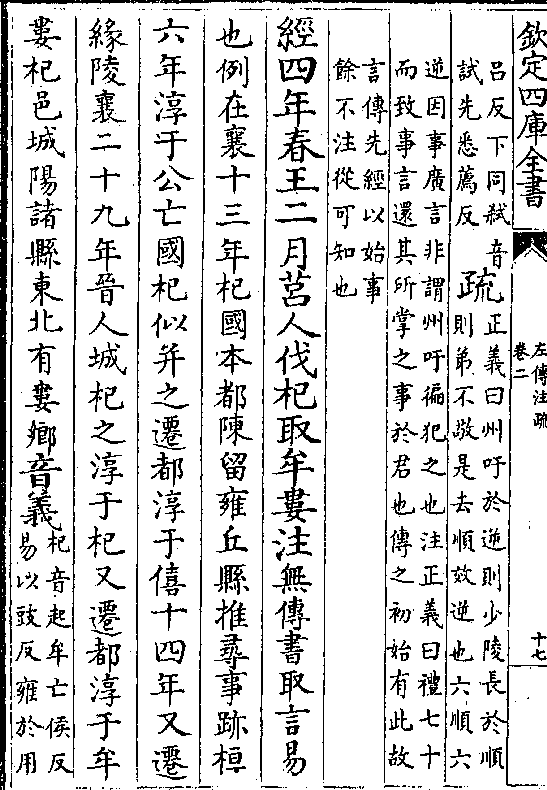 欽定四庫全書
左傳注疏
卷二
十七
呂反下同弑音
試先悉薦反
疏
正義曰州吁於逆則少陵長於順
則弟不敬是去順效逆也六順六
逆因事廣言非謂州吁徧犯之也注正義曰禮七十
而致事言還其所掌之事於君也傳之初始有此故
言傳先經以始事
餘不注從可知也
經四年春王二月莒人伐杞取牟婁注無傳書取言易
也例在襄十三年杞國本都陳留雍丘縣推尋事跡桓
六年淳于公亡國杞似并之遷都淳于僖十四年又遷
緣陵襄二十九年晉人城杞之淳于杞又遷都淳于牟
婁杞邑城陽諸縣東北有婁鄉音義
杞音起牟亡侯反
易以豉反雍於用